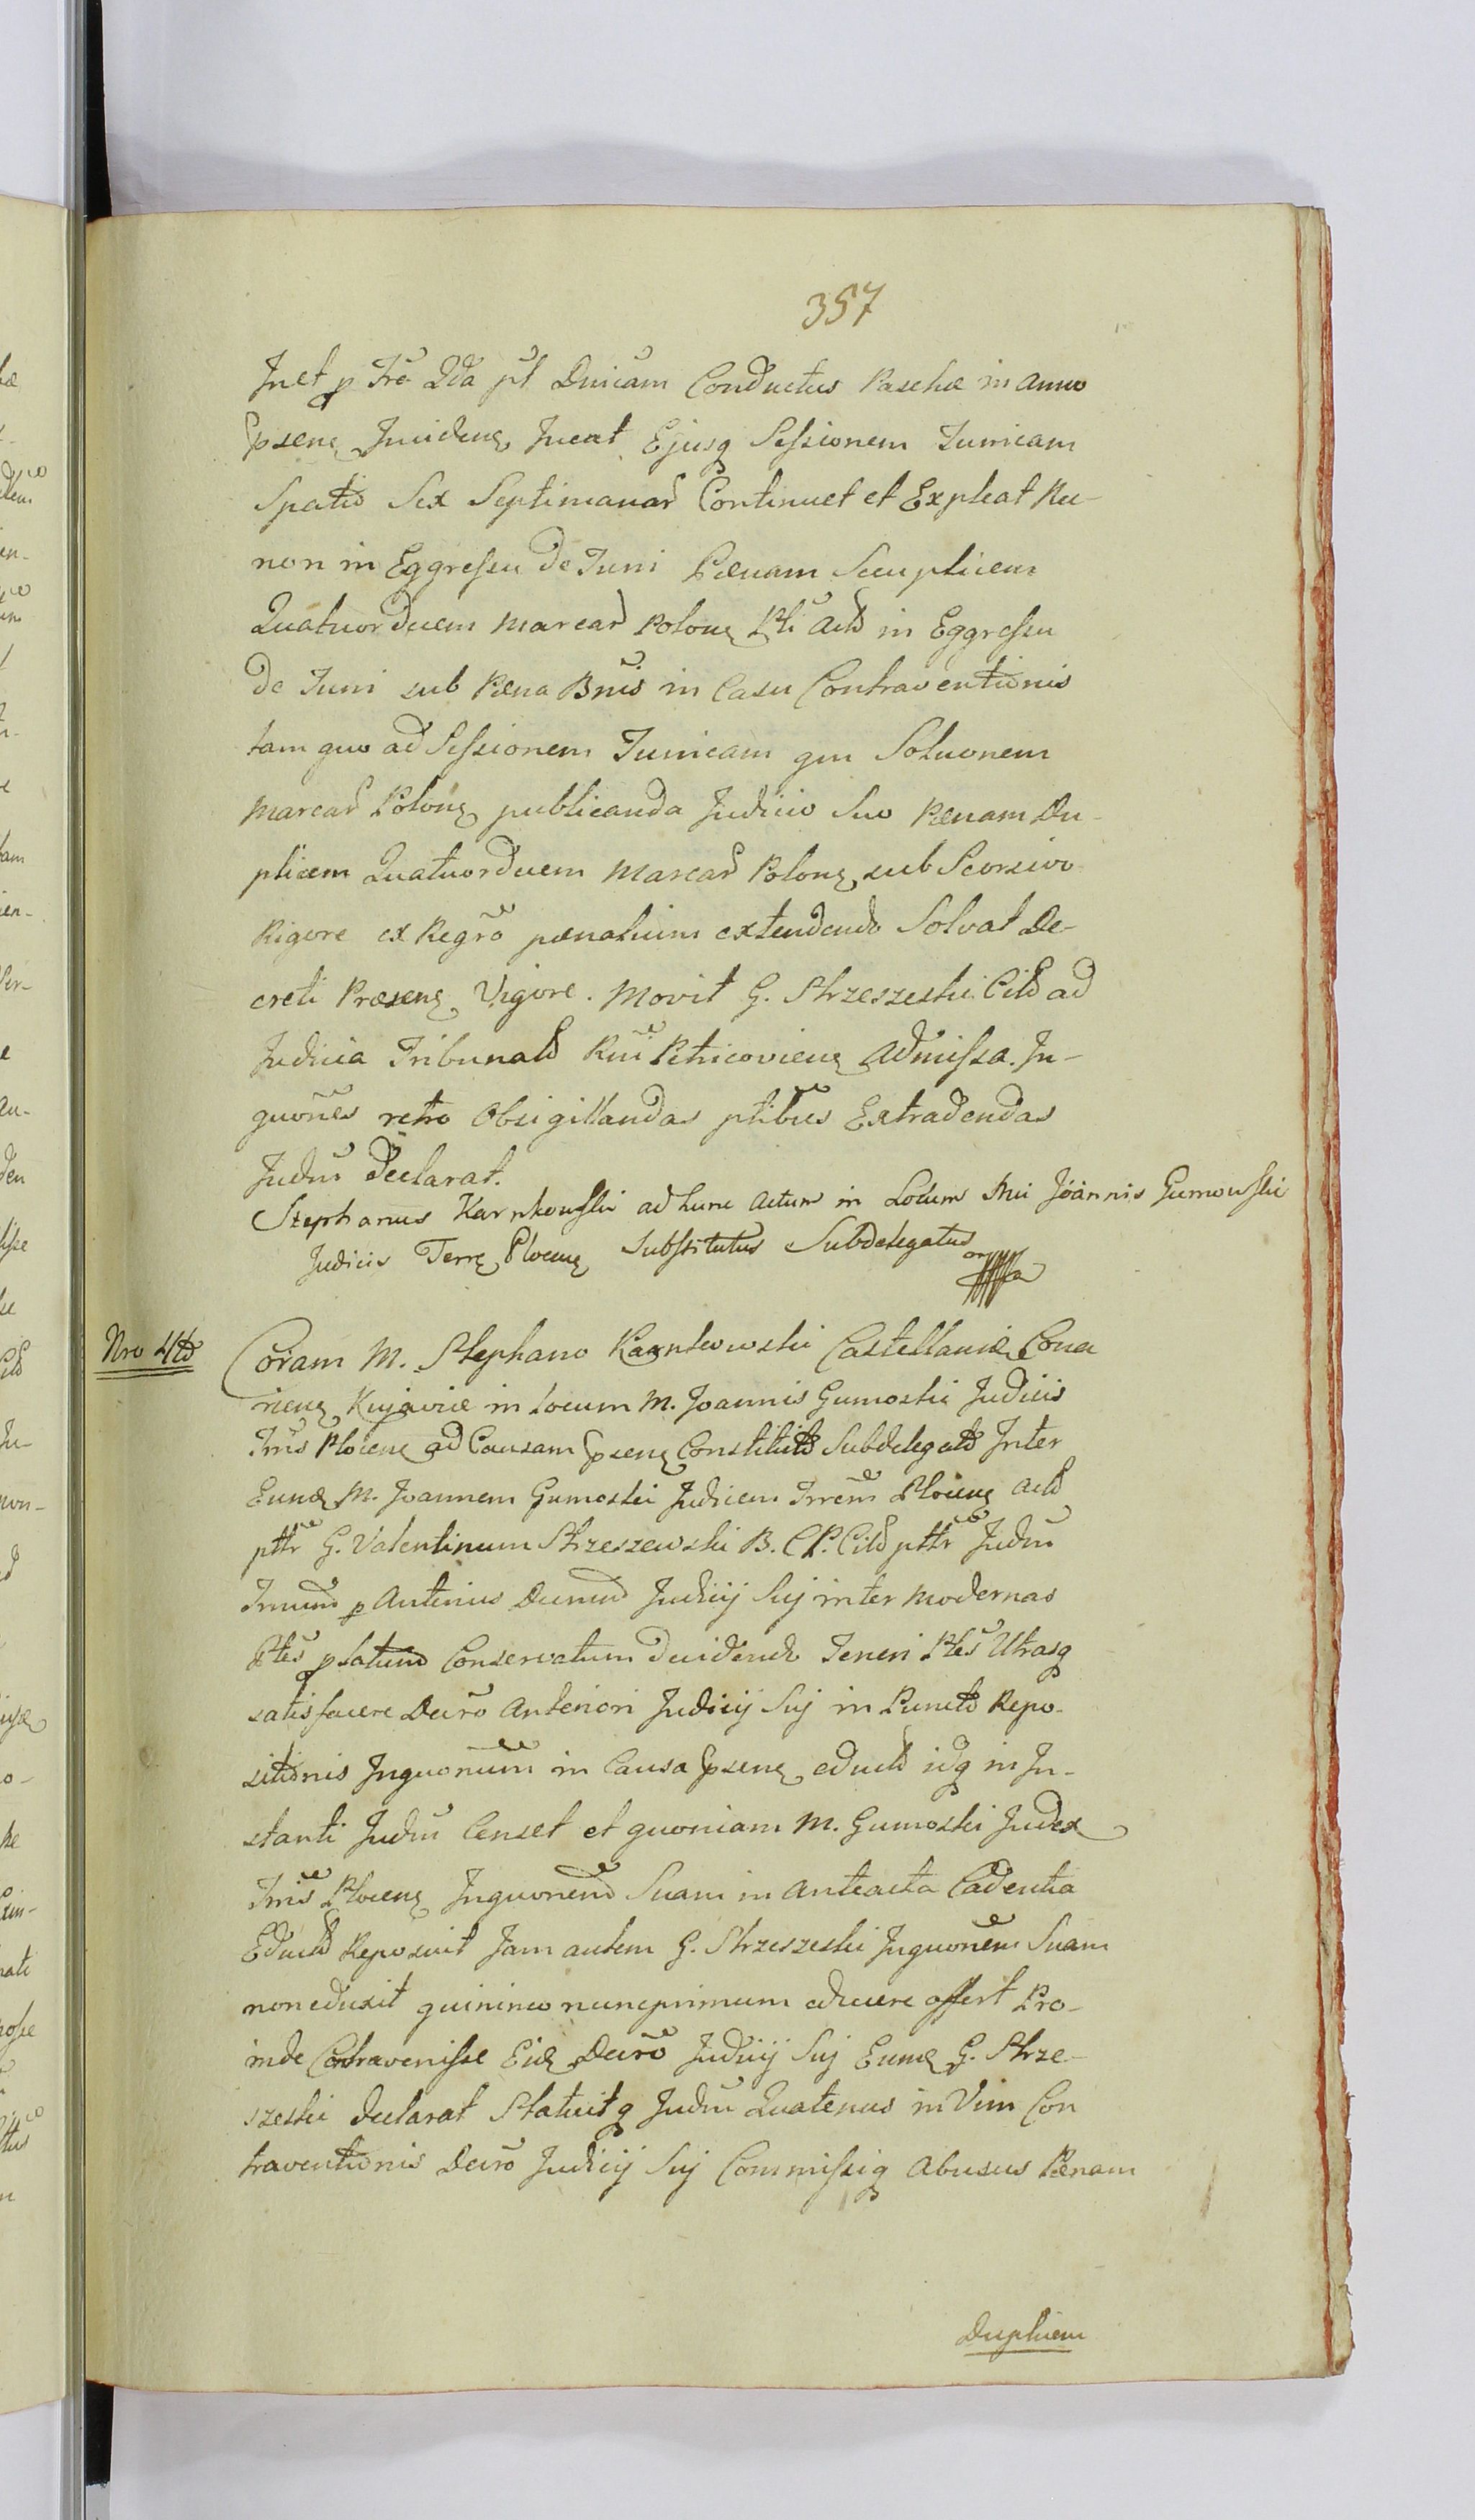 357
Inet p Fre 2da pt Dnicam Conductus Paschæ in Anno
pseng Incideng Ineat Ejusq Sessionem Turricam
Spatio Sex Septimanar Continuet et Expleat Nec-
non in Eggressu de Turri Pænam Seuplicem
Quatuordecem Marcar Polong Pti Acto in Eggressu
de Turri sub Pæna Bnis in Casu Contraventionis
tam quo ad Sessionem Turricam qm Soluonem
Marcar Polong publicanda Judicio Suo Pænam Du-
plicem Quatuordecem Marcar Polong sub Seorsivo
Rigore ex Regro pænalium extendendo Solvat De-
creti Præseng Vigore. Movit G. Strzeszeski Citd ad
Judicia Tribunald Rni Petricovieng Admissa. In-
quones retro Obsigillandas ptibus Extradendas
Judm Declarat.
Stephanus Karnkowski ad hunc actum in Locum Mci Joannis Gumowski
Judicis Terrg Ploceng Substitutus Subdelegatus
Nro 4to
Coram M. Stephano Karnkowski Castellanidæ Cona
rieng Kujaviæ in Locum M. Joannis Gumoski Judicis
Trris Ploceng ad Causam pseng Constituto Subdelegato Inter
Eund M. Joannem Gumoski Judicem Trrem Ploceng Actd
pttr G. Valentinum Strzeszewski B. C P. Citd pttr Judm
p Anterius Decrum Judicij Sui inter Modernas
Ptes platum Conservatum decidendo Teneri Ptes Utrasq
satisfacere Decro Anteriori Judicij Sui in Puncto Repo-
sitionis Inquonum in Causa pseng educto idq in In-
stanti Judm Censet et quoniam M. Gumoski Judex
Trris Ploceng Inquonem Suam in anteacta Cadentia
Educto Reposuit Jam autem G. Strzeszeski Inquonem Suam
non eduxit quinimo nuncprimum educere offert Pro-
inde Contravenisse Eid Decro Judicij Sui Eund G. Strze-
szeski declarat Statuitq Judm Quatenus in Vim Con
traventionis Decro Judicij Sui Commissiq Abusus Pænam
Duplicem